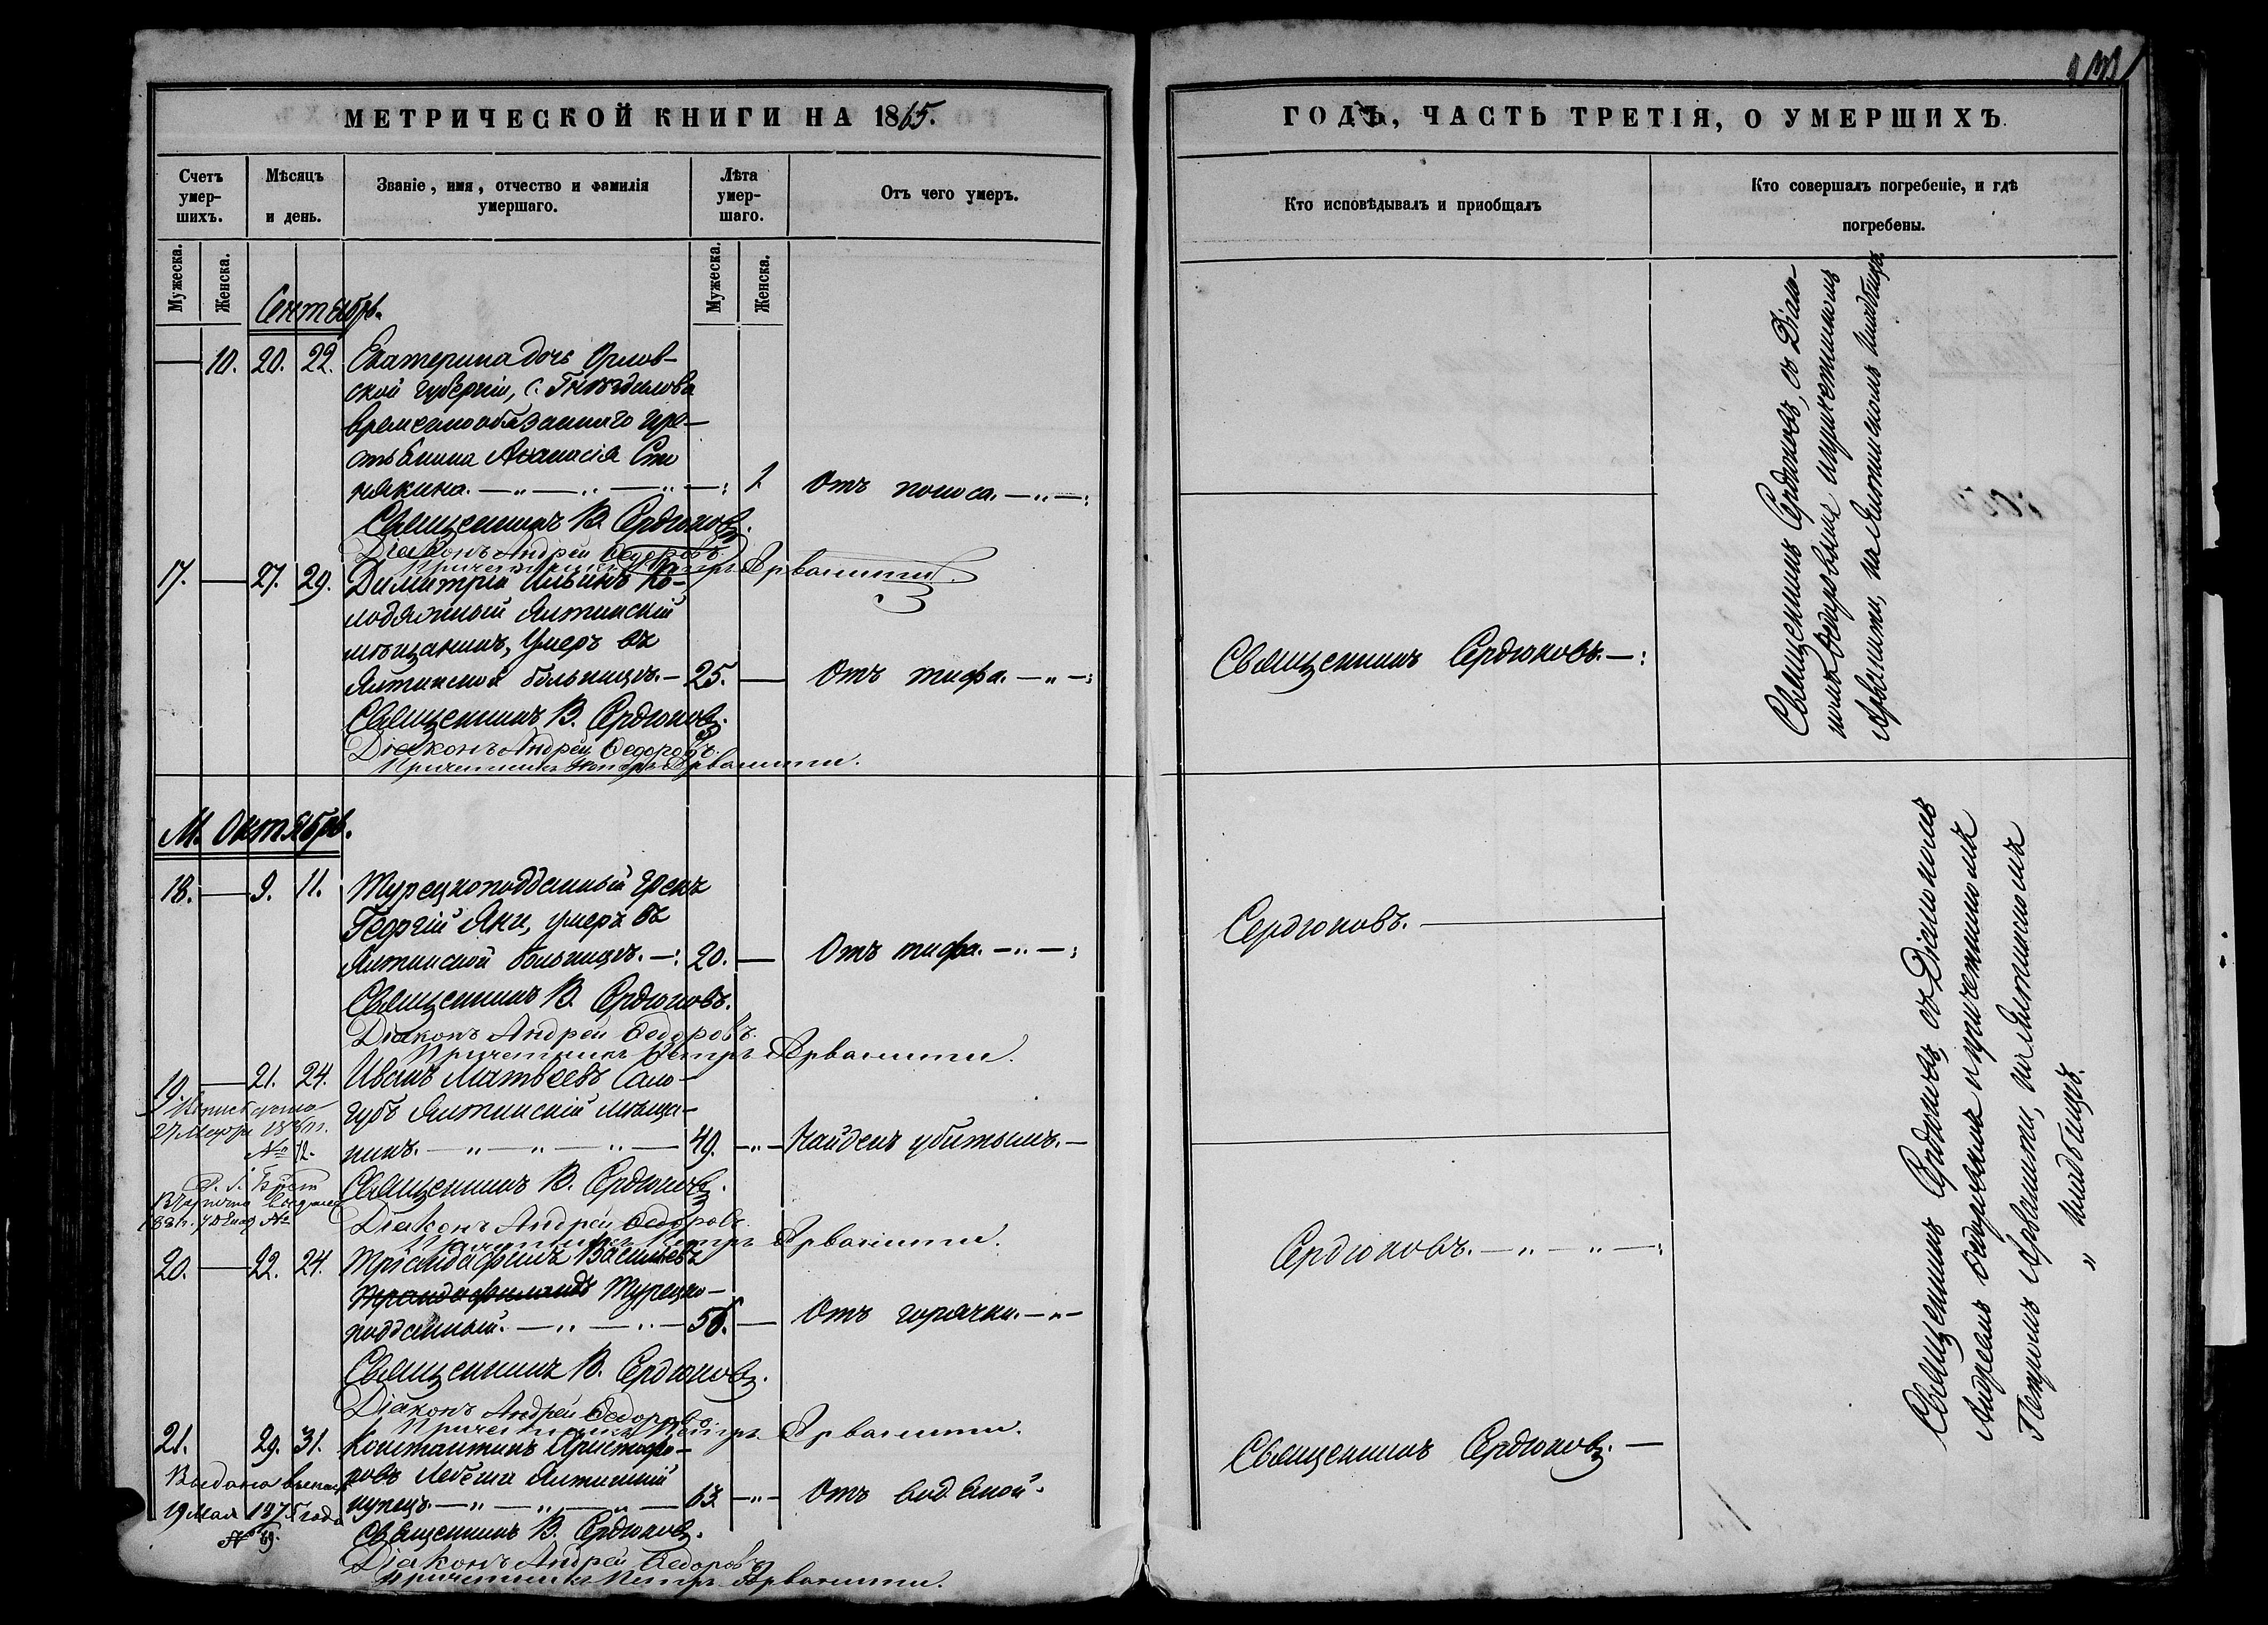 МЕТРИЧЕСКОЙ КНИГИ НА 1865.
Счетъ умер-шихъ.
Мѣсяцъ и день.
Званіе, имя, отчество и фамилія умершаго.
Лѣта умер-шаго.
Отъ чего умеръ.
Мужеска.
Женска.
Мужеска.
Женска.
Сентябрь.
— 10. 20. 22. Екатерина дочь Орлов-
ской губерніи, с. Гнѣздилова
временнообязаннаго кре-
стьянина Аѳанасія
някина. — „ — „ — „ — : 1 Отъ поноса. — „ — :
Священникъ В. Сердюковъ.
Діаконъ Андрей Ѳедоровъ.
Причетникъ Петръ Арванитти.
17. — 27. 29. Димитрій Ильинъ Ко-
лодяжный Ялтинскій
мѣщанинъ, умеръ въ
Ялтинской больницѣ. — 25. — Отъ тифа. — „ — :
Священникъ В. Сердюковъ.
Діаконъ Андрей Ѳедоровъ.
Причетникъ Петръ Арванитти.
М. Октябрь.
18. — 9. 11. Турецкоподданный грекъ
Георгій Яни, умеръ въ
Ялтинской больницѣ. — : 20. — Отъ тифа. — „ — :
Священникъ В. Сердюковъ.
Діаконъ Андрей Ѳедоровъ.
Причетникъ Петръ Арванитти.
19. — 21. 24. Иванъ Матвѣевъ Само-
губъ Ялтинскій мѣща-
нинъ. — „ — „ — „ — 49. — „ — Найденъ убитымъ. —
№ 12.
Священникъ В. Сердюковъ.
Діаконъ Андрей Ѳедоровъ.
Причетникъ Петръ Арванитти.
20. — 22. 24. Тріандафилъ Васильевъ
Турецко-
подданный. — „ — „ — 56. — Отъ горячки. — „ —
Священникъ В. Сердюковъ.
Діаконъ Андрей Ѳедоровъ.
Причетникъ Петръ Арванитти.
21. 29. 31. Константинъ Христофо-
ровъ Ялтинскій
купецъ. — „ — „ — „ — 63. — „ — Отъ водяной.
Выдана выпись
19 Мая 1875 года
№ 69.
Священникъ В. Сердюковъ.
Діаконъ Андрей Ѳедоровъ
Причетникъ Петръ Арванитти.
ГОДЪ, ЧАСТЬ ТРЕТІЯ, О УМЕРШИХЪ.
Кто исповѣдывалъ и пріобщалъ
Кто совершалъ погребеніе, и гдѣ погребены.
Священникъ Сердюковъ. — :
Сердюковъ. —
Сердюковъ. — „ — „ — :
Священникъ Сердюковъ. —
Священникъ Сердюковъ, съ Діако-
номъ Ѳедоровымъ и причетникомъ
Арванитти, на Ялтинскомъ кладбищѣ.
Священникъ Сердюковъ, съ Діакономъ
Андреемъ Ѳедоровымъ и причетникомъ
Петромъ Арванитти, на Ялтинскомъ
„ кладбищѣ.